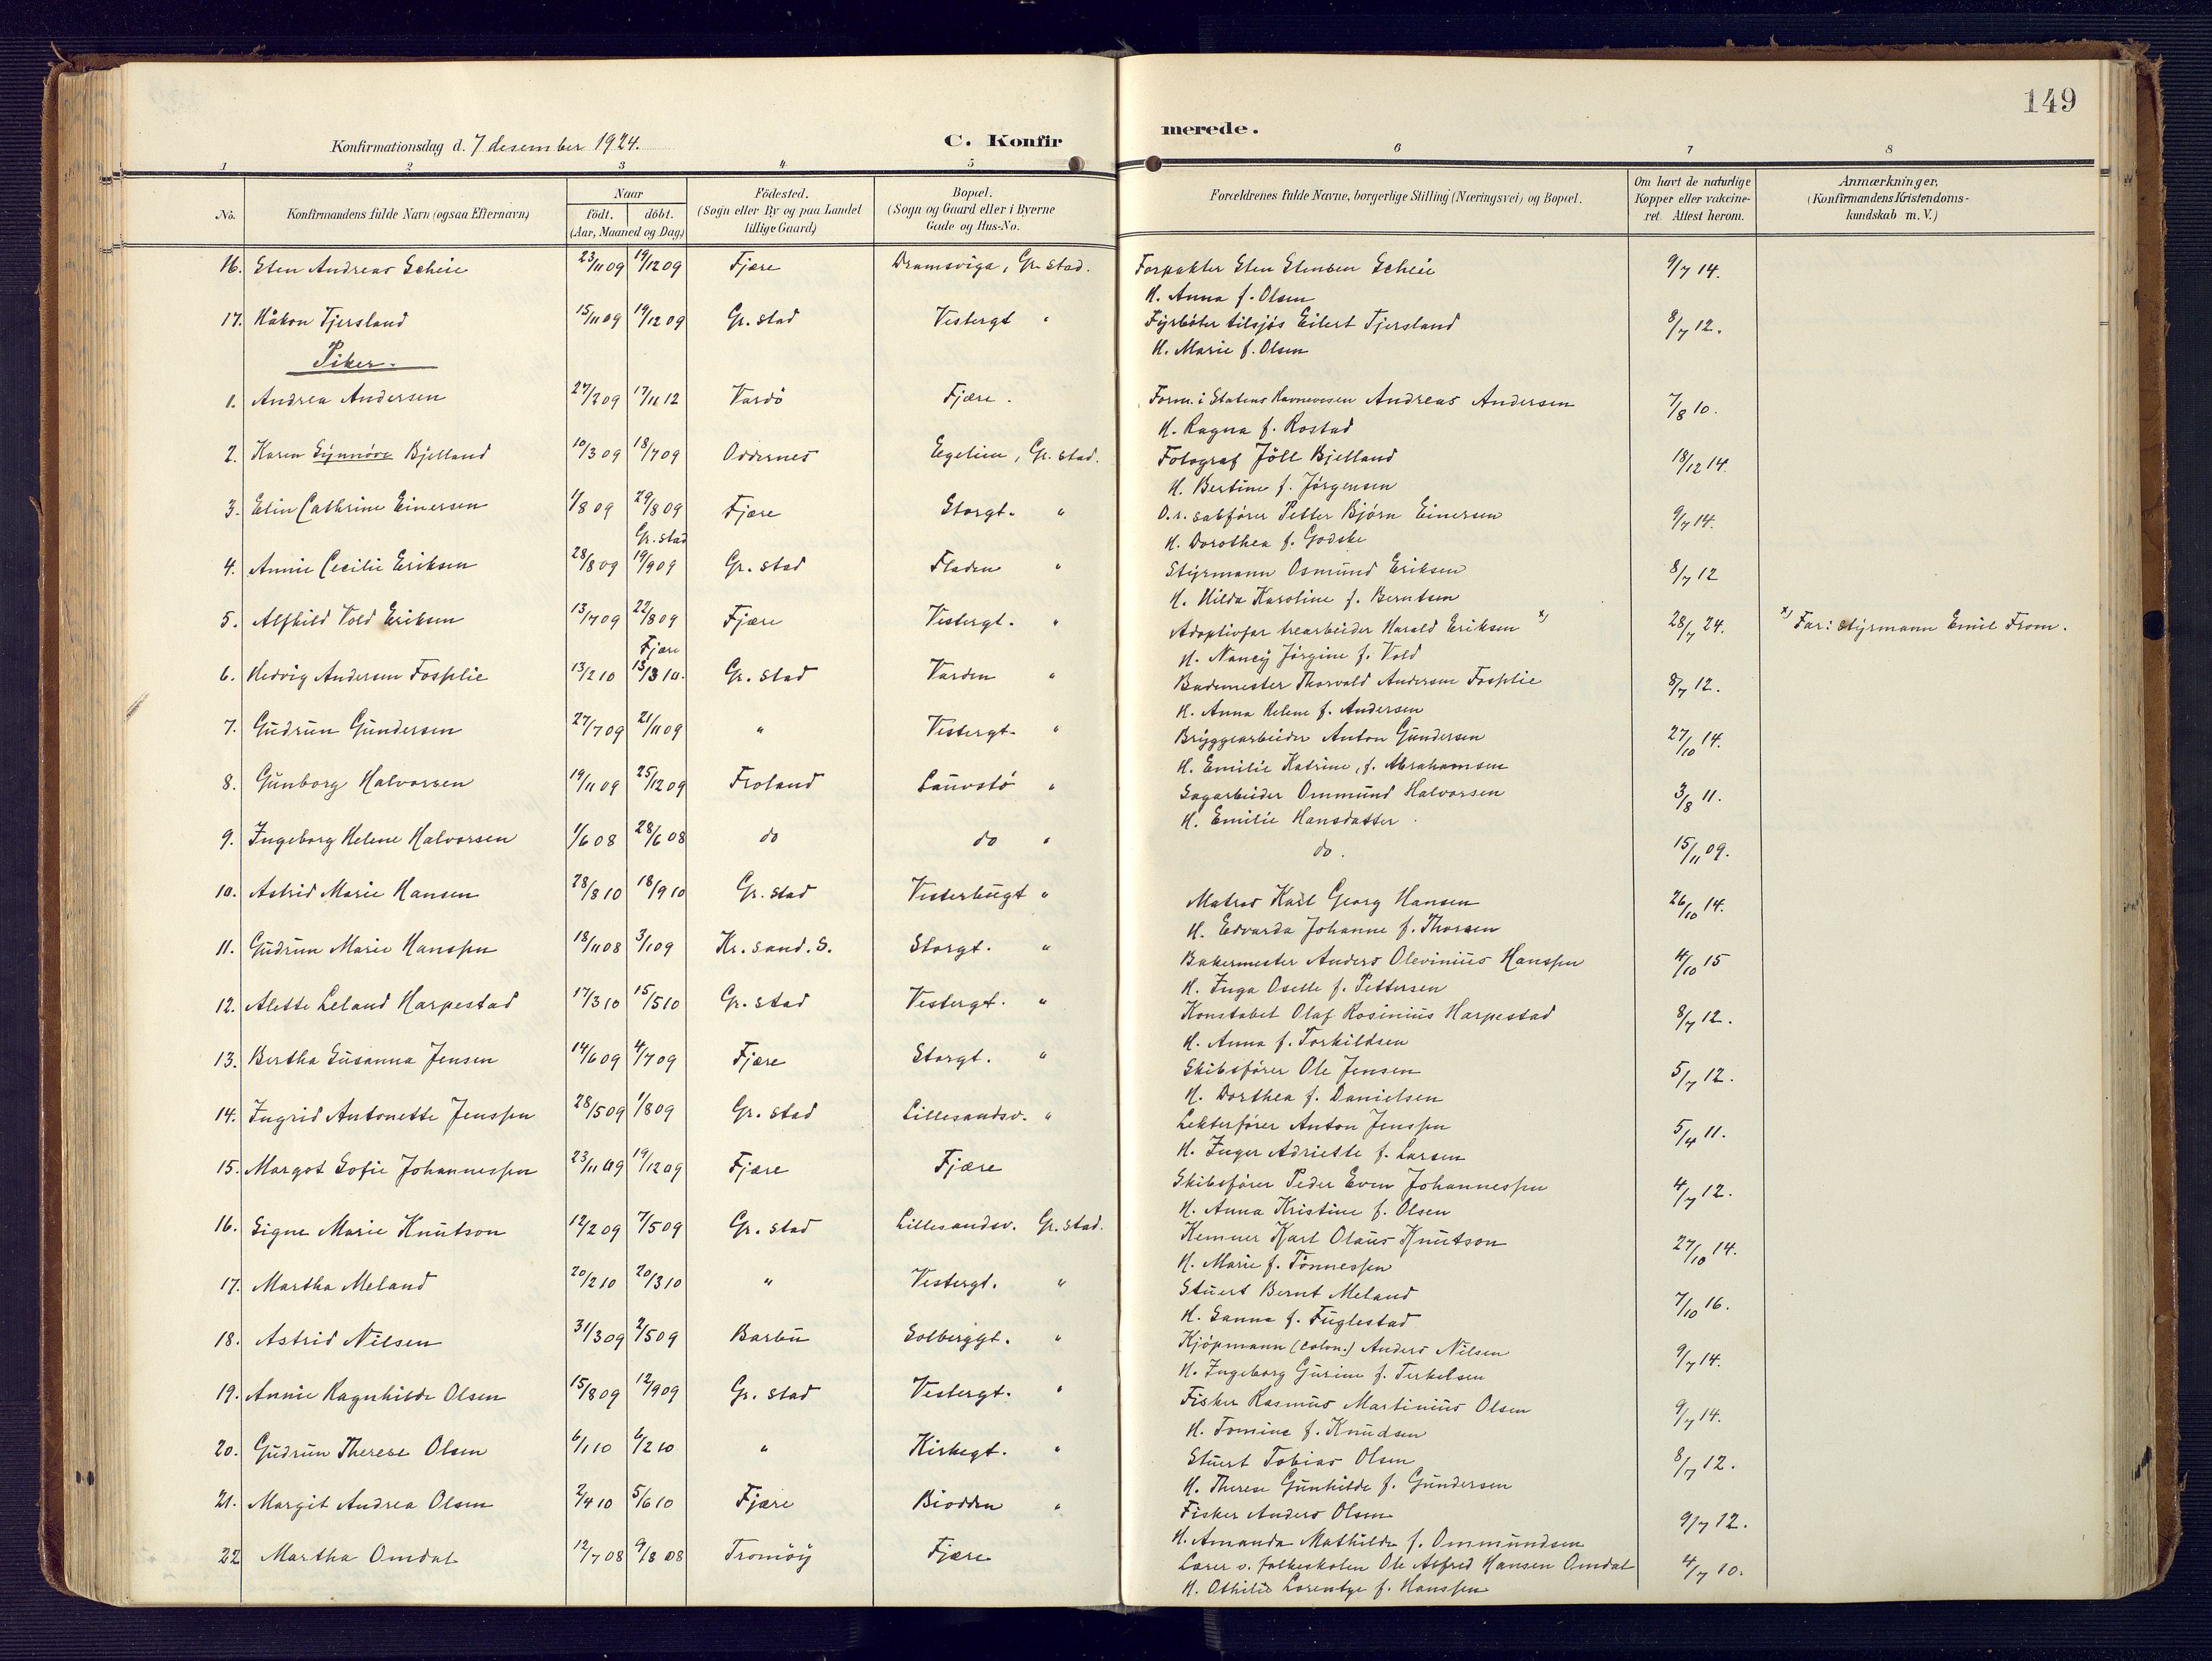 149
Konfirmationsdag d. 7 desember 1924.
C. Konfir
merede.
1 2 3 4 5 6 7 8
No. Konfirmandens fulde Navn (ogsaa Efternavn) Naar födt. döbt. (Aar, Maaned og Dag) Födested. (Sogn eller By og paa Landet tillige Gaard) Bopæl. (Sogn og Gaard eller i Byerne Gade og Hus-No. Forældrenes fulde Navne, borgerlige Stilling (Næringsvei) og Bopæl. Om havt de naturlige Kopper eller vakcineret. Attest herom. Anmærkninger, (Konfirmandens Kristendomskundskab m. V.)
16. Sten Andreas Scheie 23/11 09 19/12 09 Fjære Dramsviga, Gr. stad. Forpakter Sten Stensen Scheie 9/7 14.
H. Anna f. Olsen
17. Håkon Tjersland 15/11 09 19/12 09 Gr. stad Vestergt " Fyrböter tilsjös Eilert Tjersland 8/7 12.
H. Marie f. Olsen
Piker.
1. Andrea Andersen 27/2 09 17/11 12 Vardö Fjære. Form. i Statens Havnevesen Andreas Andersen 7/8 10.
H. Ragna f. Rostad
2. Karen Synnöve Bjelland 10/3 09 18/7 09 Oddernes Egelien, Gr. stad. Fotograf Jöll Bjelland 18/12 14.
H. Bertine f. Jörgensen
3. Elin Cathrine Einersen 1/8 09 29/8 09 Fjære Storgt. " O.r. sakförer Petter Björn Einersen 9/7 14.
Gr. stad H. Dorothea f. Godske
4. Annie Cecilie Eriksen 28/8 09 19/9 09 Gr. stad Fladen " Styrmann Osmund Eriksen 8/7 12
H. Hilda Karoline f. Berntsen
5. Alfhild Vold Eriksen 13/7 09 22/8 09 Fjære Vestergt. " Adoptivfar trearbeider Harald Eriksen x) 28/7 24. x) Far: styrmann Emil From.
Fjære H. Nancy Jörgine f. Vold
6. Hedvig Andersen Fosslie 13/2 10 13/3 10. Gr. stad Varden " Bademester Thorvald Andersen Fosslie 8/7 12.
H. Anna Helene f. Andersen
7. Gudrun Gundersen 27/7 09 21/11 09 " Vestergt. " Bryggearbeider Anton Gundersen 27/10 14.
H. Emilie Katrine, f. Abrahamsen
8. Gunborg Halvorsen 19/11 09 25/12 09 Froland Sauvstö " Sagarbeider Ommund Halvorsen 3/8 11.
H. Emilie Hansdatter.
9. Ingeborg Helene Halvorsen 1/6 08 28/6 08 do do " do. 15/11 09.
10. Astrid Marie Hansen 28/8 10 18/9 10 Gr. stad Vesterbugt " Matros Karl Georg Hansen 26/10 14.
H. Edvarda Johanne f. Thorsen
11. Gudrun Marie Hanssen 18/11 08 3/1 09 Kr. sand. S. Storgt. " Bakermester Anders Olevinius Hanssen 4/10 15
H. Inga Oselle f. Pettersen
12. Alette Leland Harpestad 17/3 10 15/5 10 Gr. stad Vestergt. " Konstabel Olaf Rosinius Harpestad 8/7 12.
H. Anna f. Torkildsen
13. Bertha Susanna Jensen 14/6 09 4/7 09 Fjære Storgt. " Skibsförer Ole Jensen 5/7 12.
H. Dorthea f. Danielsen
14. Ingrid Antonette Jenssen 28/5 09 1/8 09 Gr. stad Lillesandsv. " Lekterförer Anton Jenssen 5/4 11.
H. Inger Adriette f. Larsen
15. Margot Sofie Johannessen 23/11 09 19/12 09 Fjære Fjære Skibsförer Peder Even Johannessen 4/7 12.
H. Anna Kristine f. Olsen
16. Signe Marie Knutson 12/2 09 7/5 09 Gr. stad Lillesandsv. Gr. stad. Kemner Karl Olaus Knutson 27/10 14.
H. Marie f. Tönnessen
17. Martha Meland 20/2 10 20/3 10 " Vestergt. " Stuert Bernt Meland 7/10 16.
H. Sanna f. Fuglestad
18. Astrid Nilsen 31/3 09 2/5 09 Barbu Solberggt. " Kjöpmann (Colon.) Anders Nilsen 9/7 14.
H. Ingeborg Gurine f. Terkelsen
19. Annie Ragnhilde Olsen 15/8 09 12/9 09 Gr. stad Vestergt. " Fisker Rasmus Martinius Olsen 9/7 14.
H. Tomine f. Knudsen
20. Gudrun Therese Olsen 6/1 10 6/2 10 " Kirkegt. " Stuert Tobias Olsen 8/7 12.
H. Therese Gunhilde f. Gundersen
21. Margit Andrea Olsen 2/4 10 5/6 10 Fjære Biodden " Fisker Anders Olsen 9/7 12.
H. Amanda Mathilde f. Ommundsen
22 Martha Omdal 12/7 08 9/8 08 Tromöy Fjære Lærer v. folkeskolen Ole Alfred Hansen Omdal 4/7 10.
H. Othilie Lorentze f. Hanssen